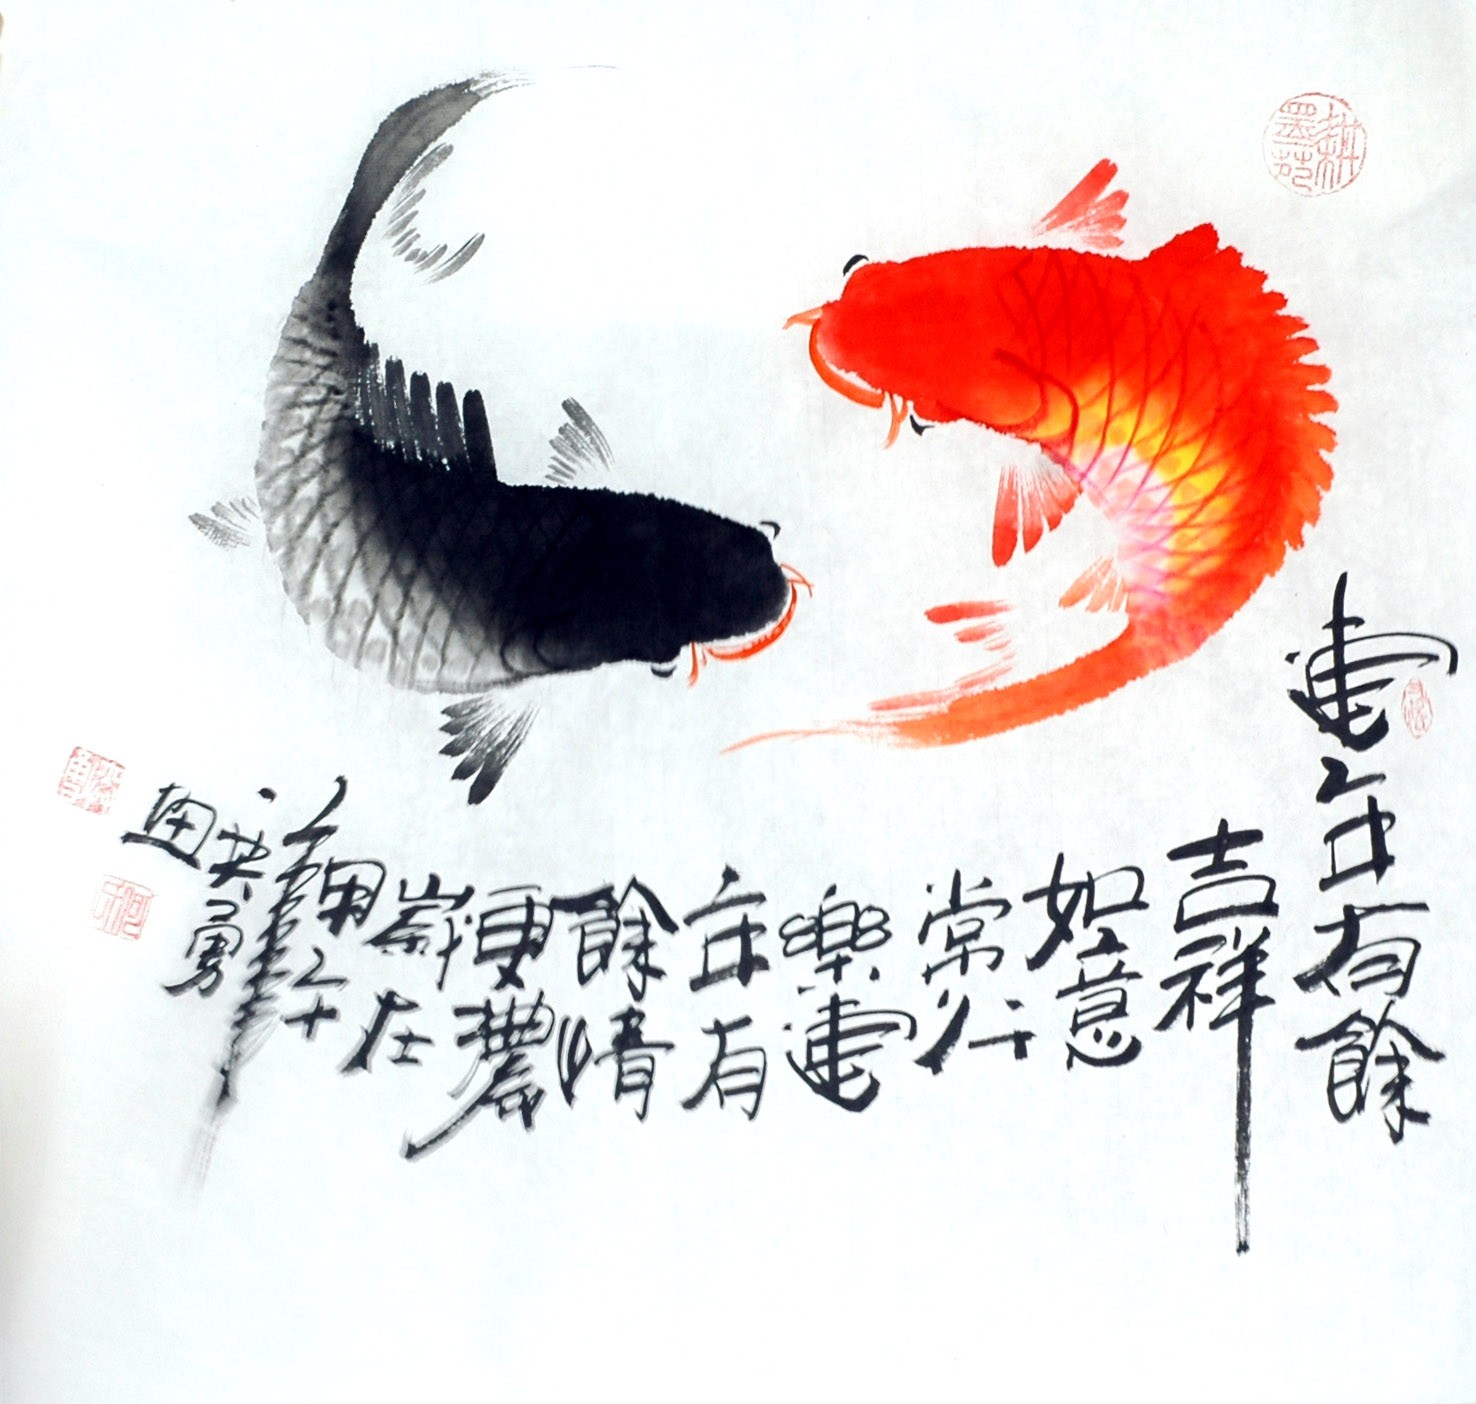 連年有餘
吉祥
如意
常行
樂連
年有
餘情
更濃
歲在
甲午
年
英勇